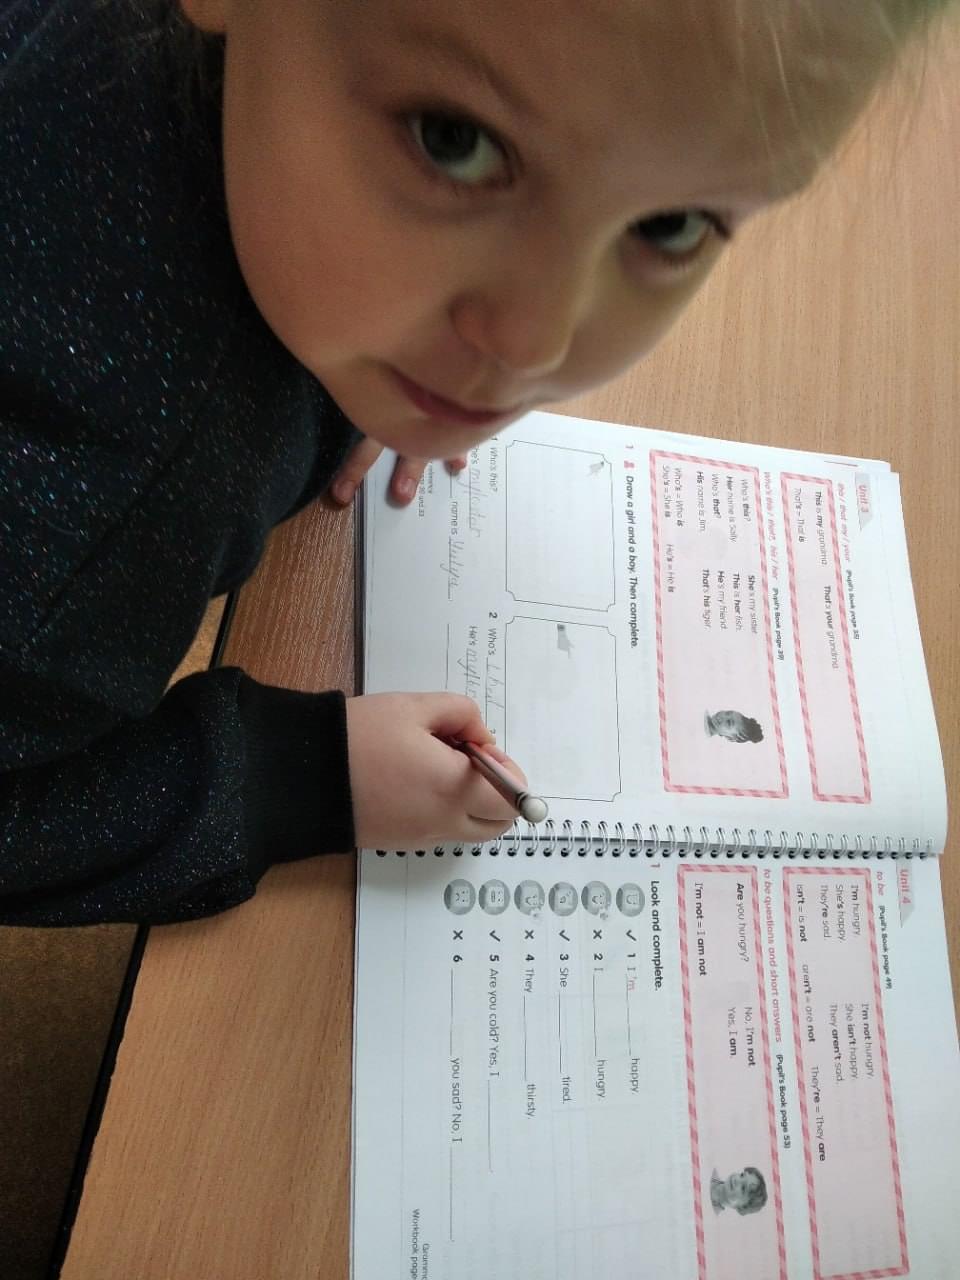 Unit 3
this / that my / your (Pupil's Book page 35)
This is my grandma. That's your grandma.
That's = That is
Who's this / that?, his / her (Pupil's Book page 39)
Who's this? She's my sister.
Her name is Sally. This is her fish.
Who's that? He's my friend.
His name is Jim. That's his tiger.
Who's = Who is He's = He is
She's = She is
1 Draw a girl and a boy. Then complete.
1 Who's this? 2 Who's
name is Yulya He's
Unit 4
to be (Pupil's Book page 49)
I'm hungry. I'm not hungry.
She's happy. She isn't happy.
They're sad. They aren't sad.
isn't = is not aren't = are not They're = They are
to be questions and short answers (Pupil's Book page 53)
Are you hungry? No, I'm not
Yes, I am.
I'm not = I am not
1 Look and complete.
✓ 1 I 'm happy.
✗ 2 I hungry.
✓ 3 She tired.
✗ 4 They thirsty.
✓ 5 Are you cold? Yes, I
✗ 6 you sad? No, I